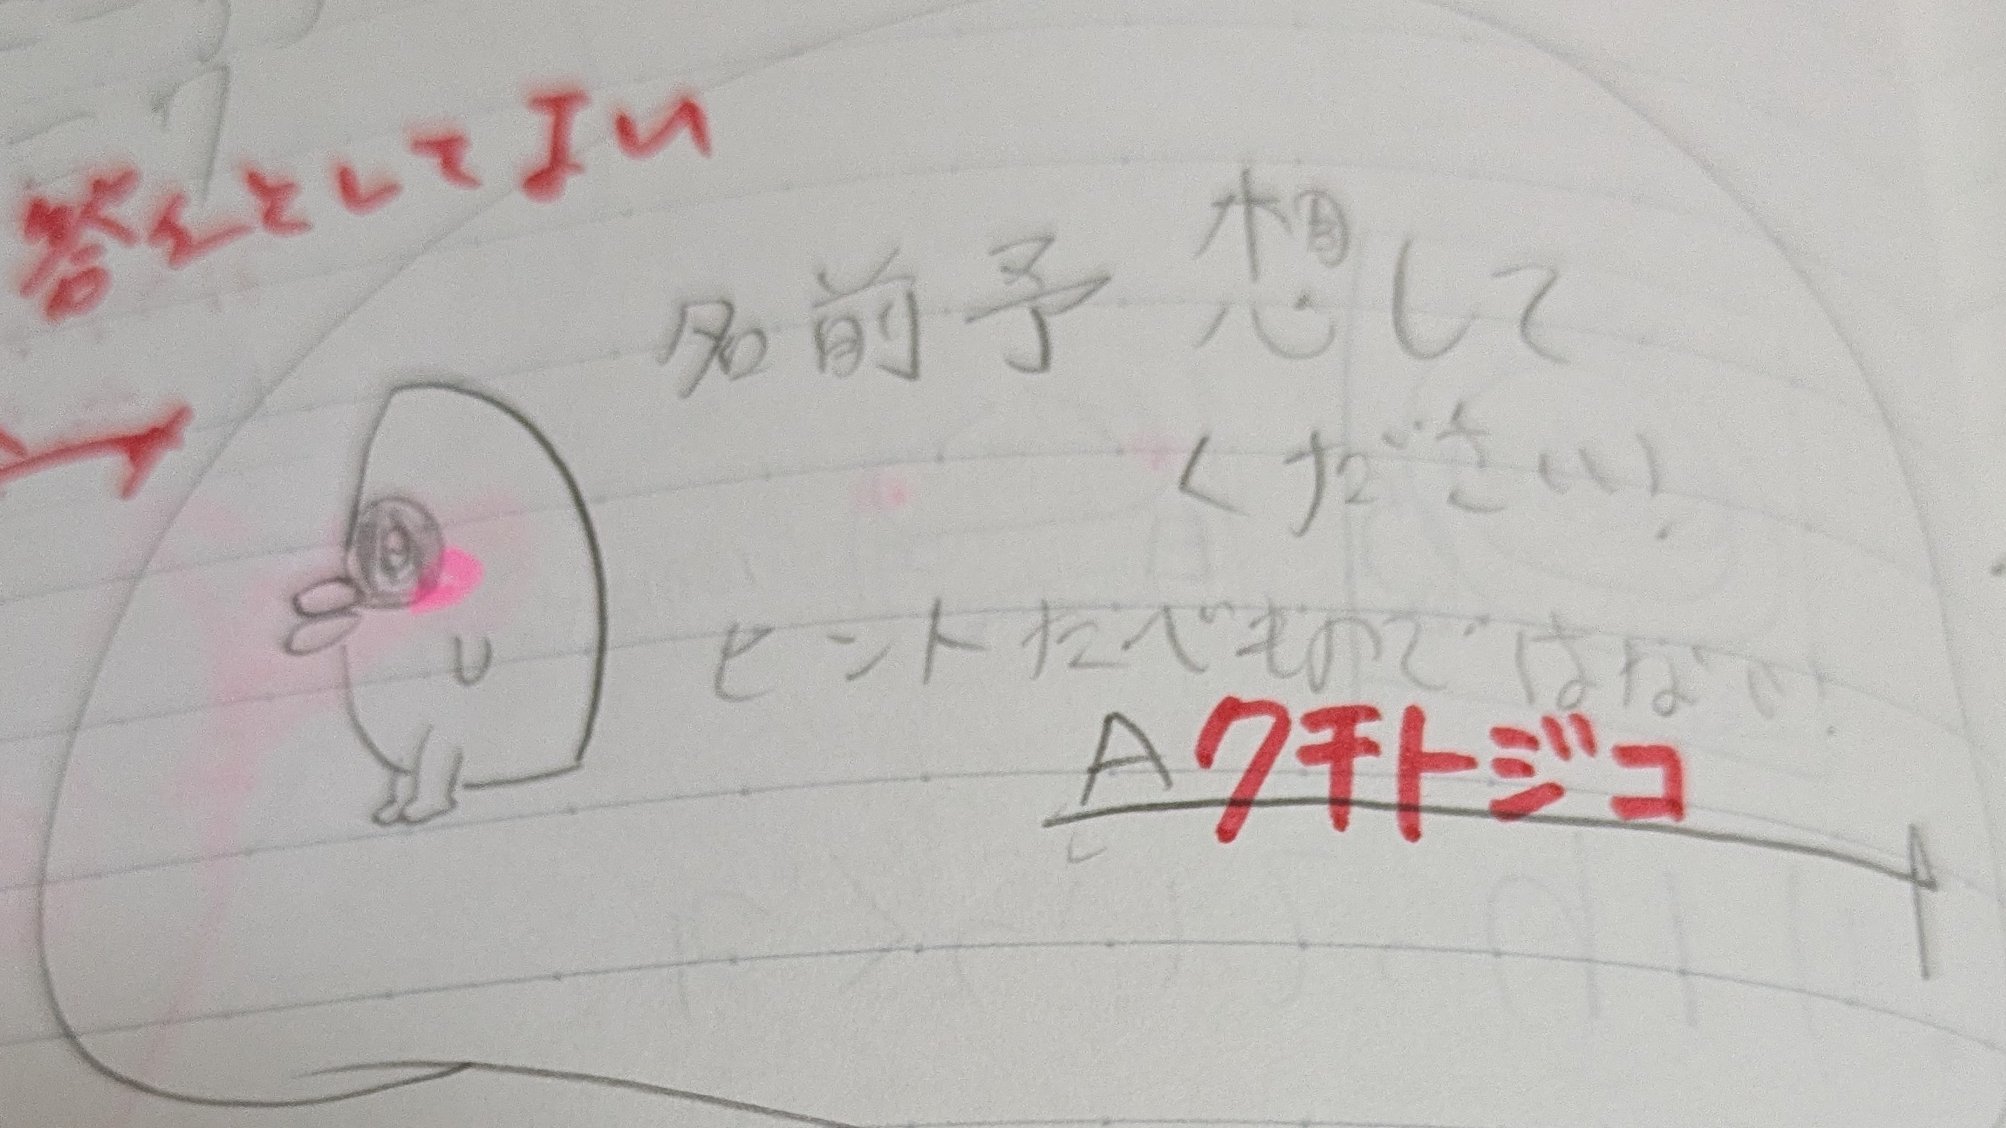 答えとしてよい
名前予想して
ください!
ヒントたべものではない!
A クチトジコ